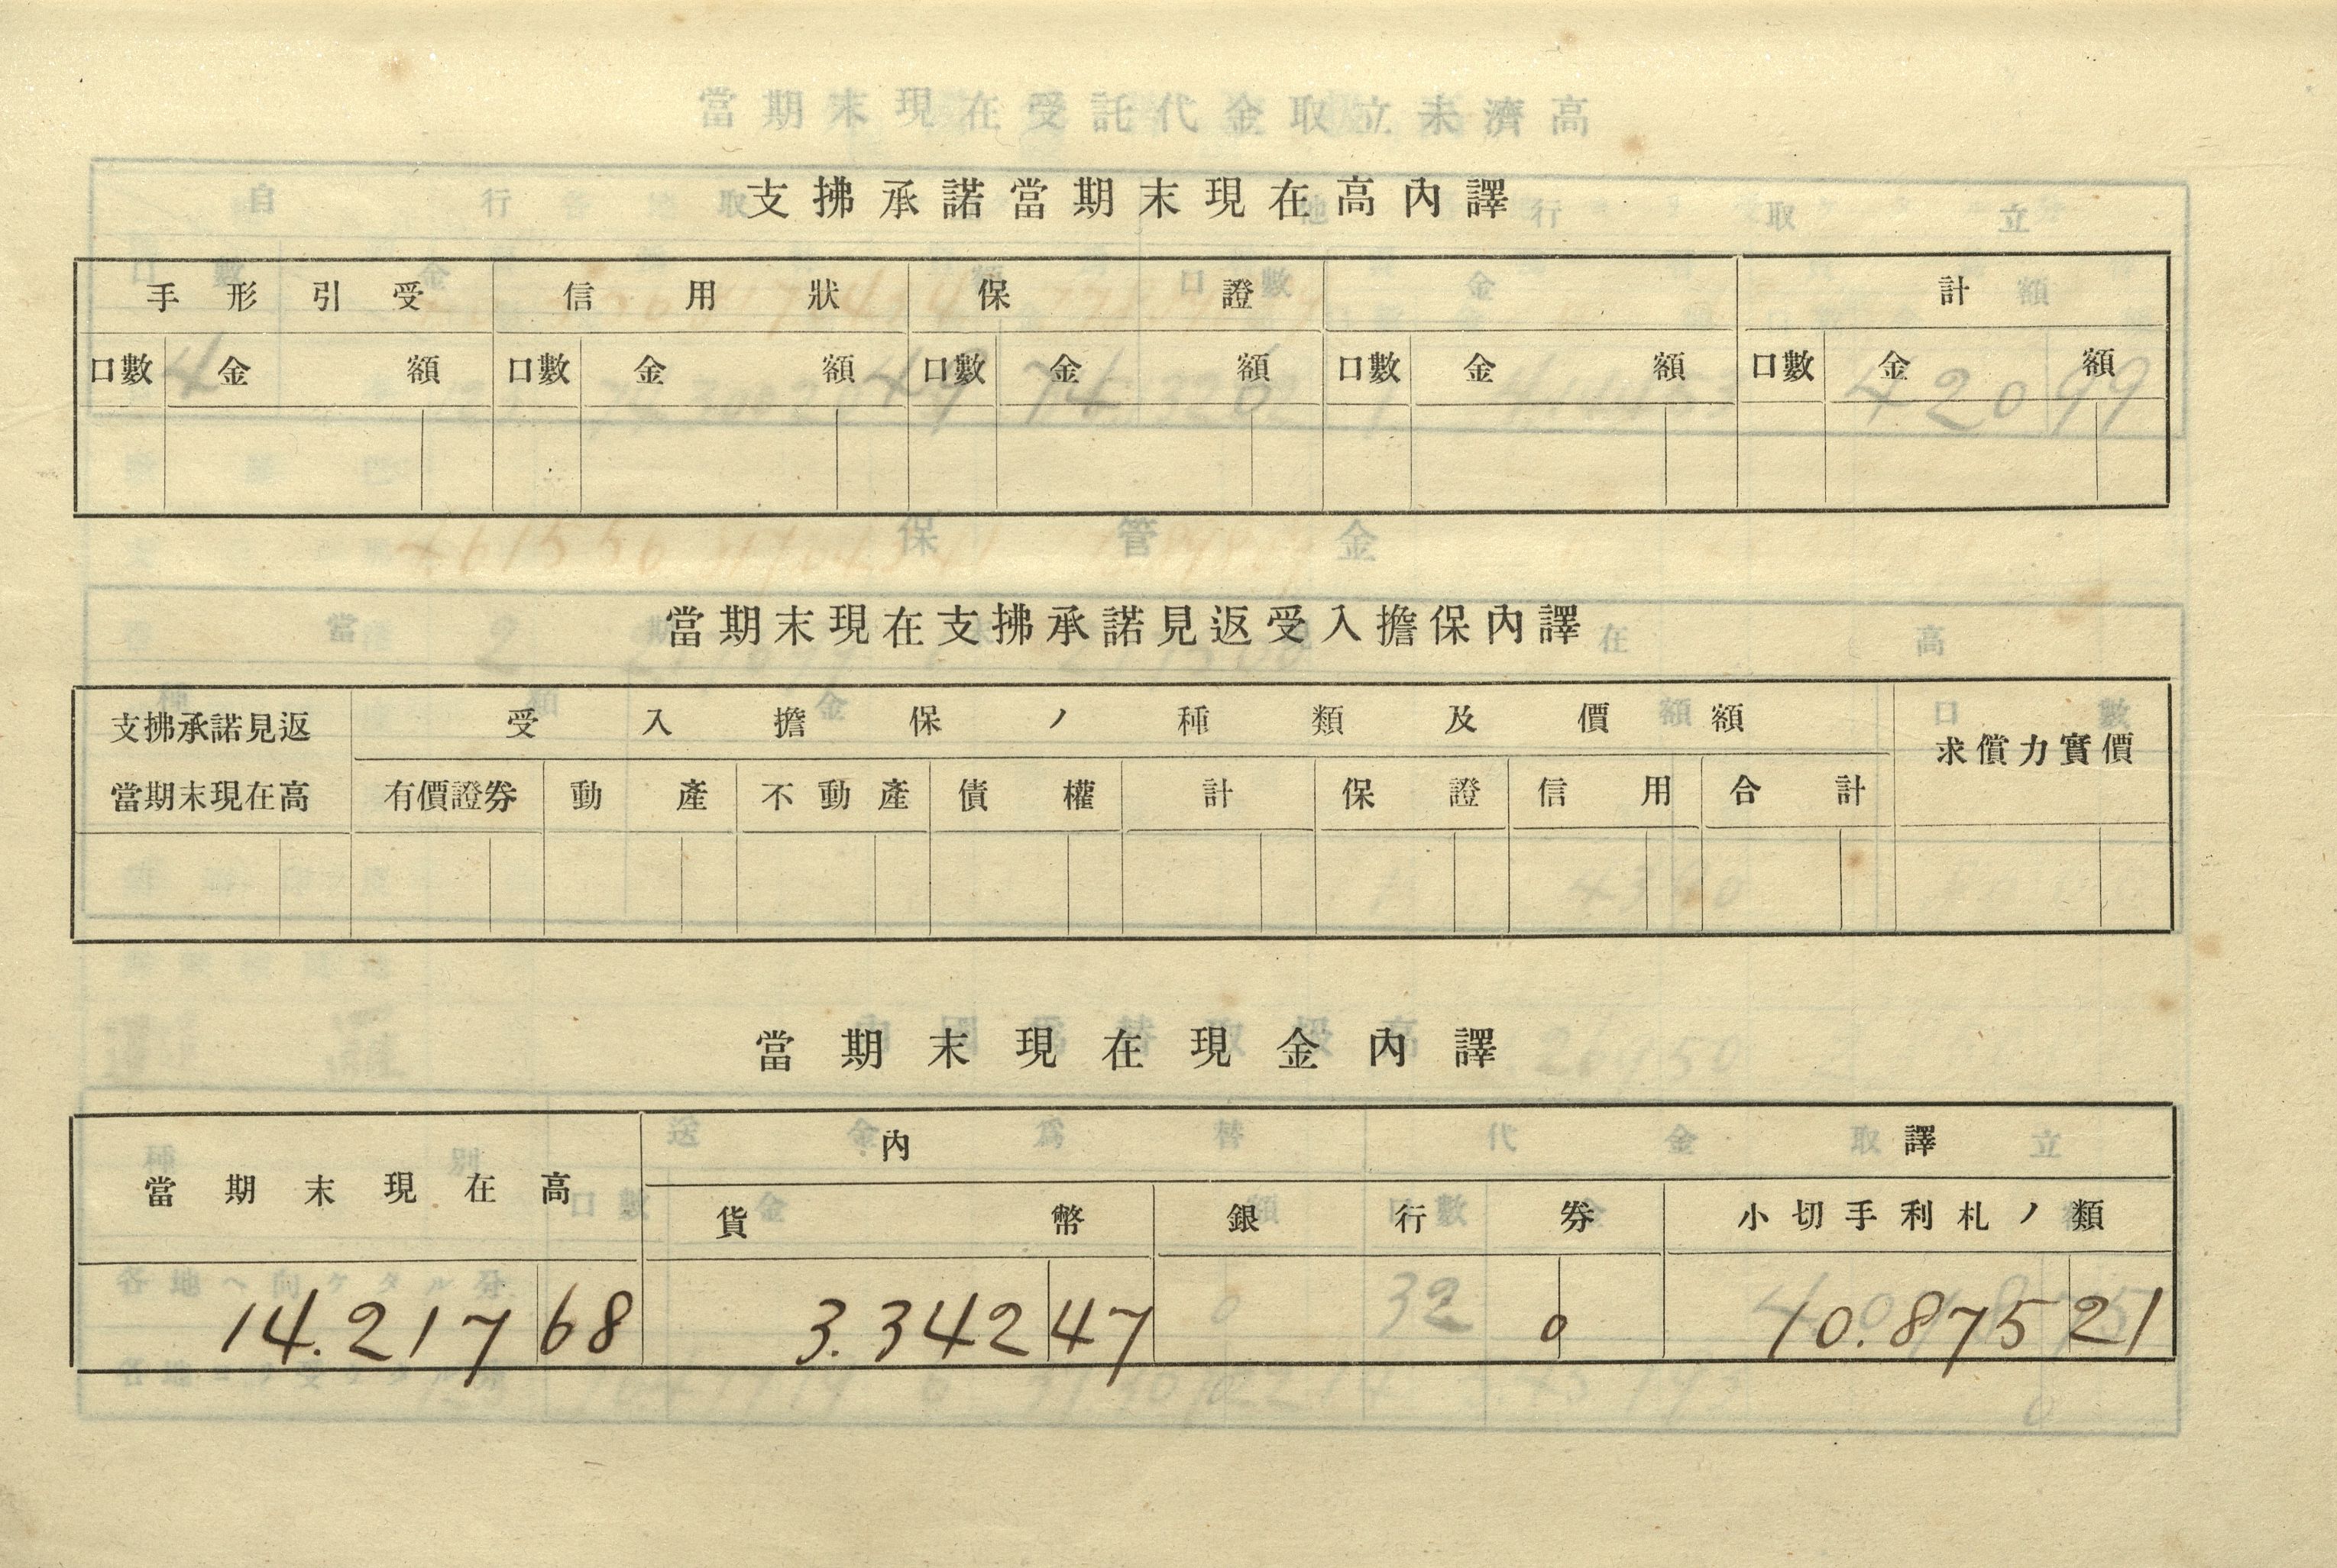 支拂承諾當期末現在高內譯
手形引受 信用狀 保證 計
口數 金額 口數 金額 口數 金額 口數 金額 口數 金額
當期末現在支拂承諾見返受入擔保內譯
支拂承諾見返 受入擔保ノ種類及價額 求償力實價
當期末現在高 有價證券 動產 不動產 債權 計 保證 信用 合計
當期末現在現金內譯
內譯
當期末現在高 貨幣 銀行券 小切手利札ノ類
14.217 68 3.342 47 0 10.875 21